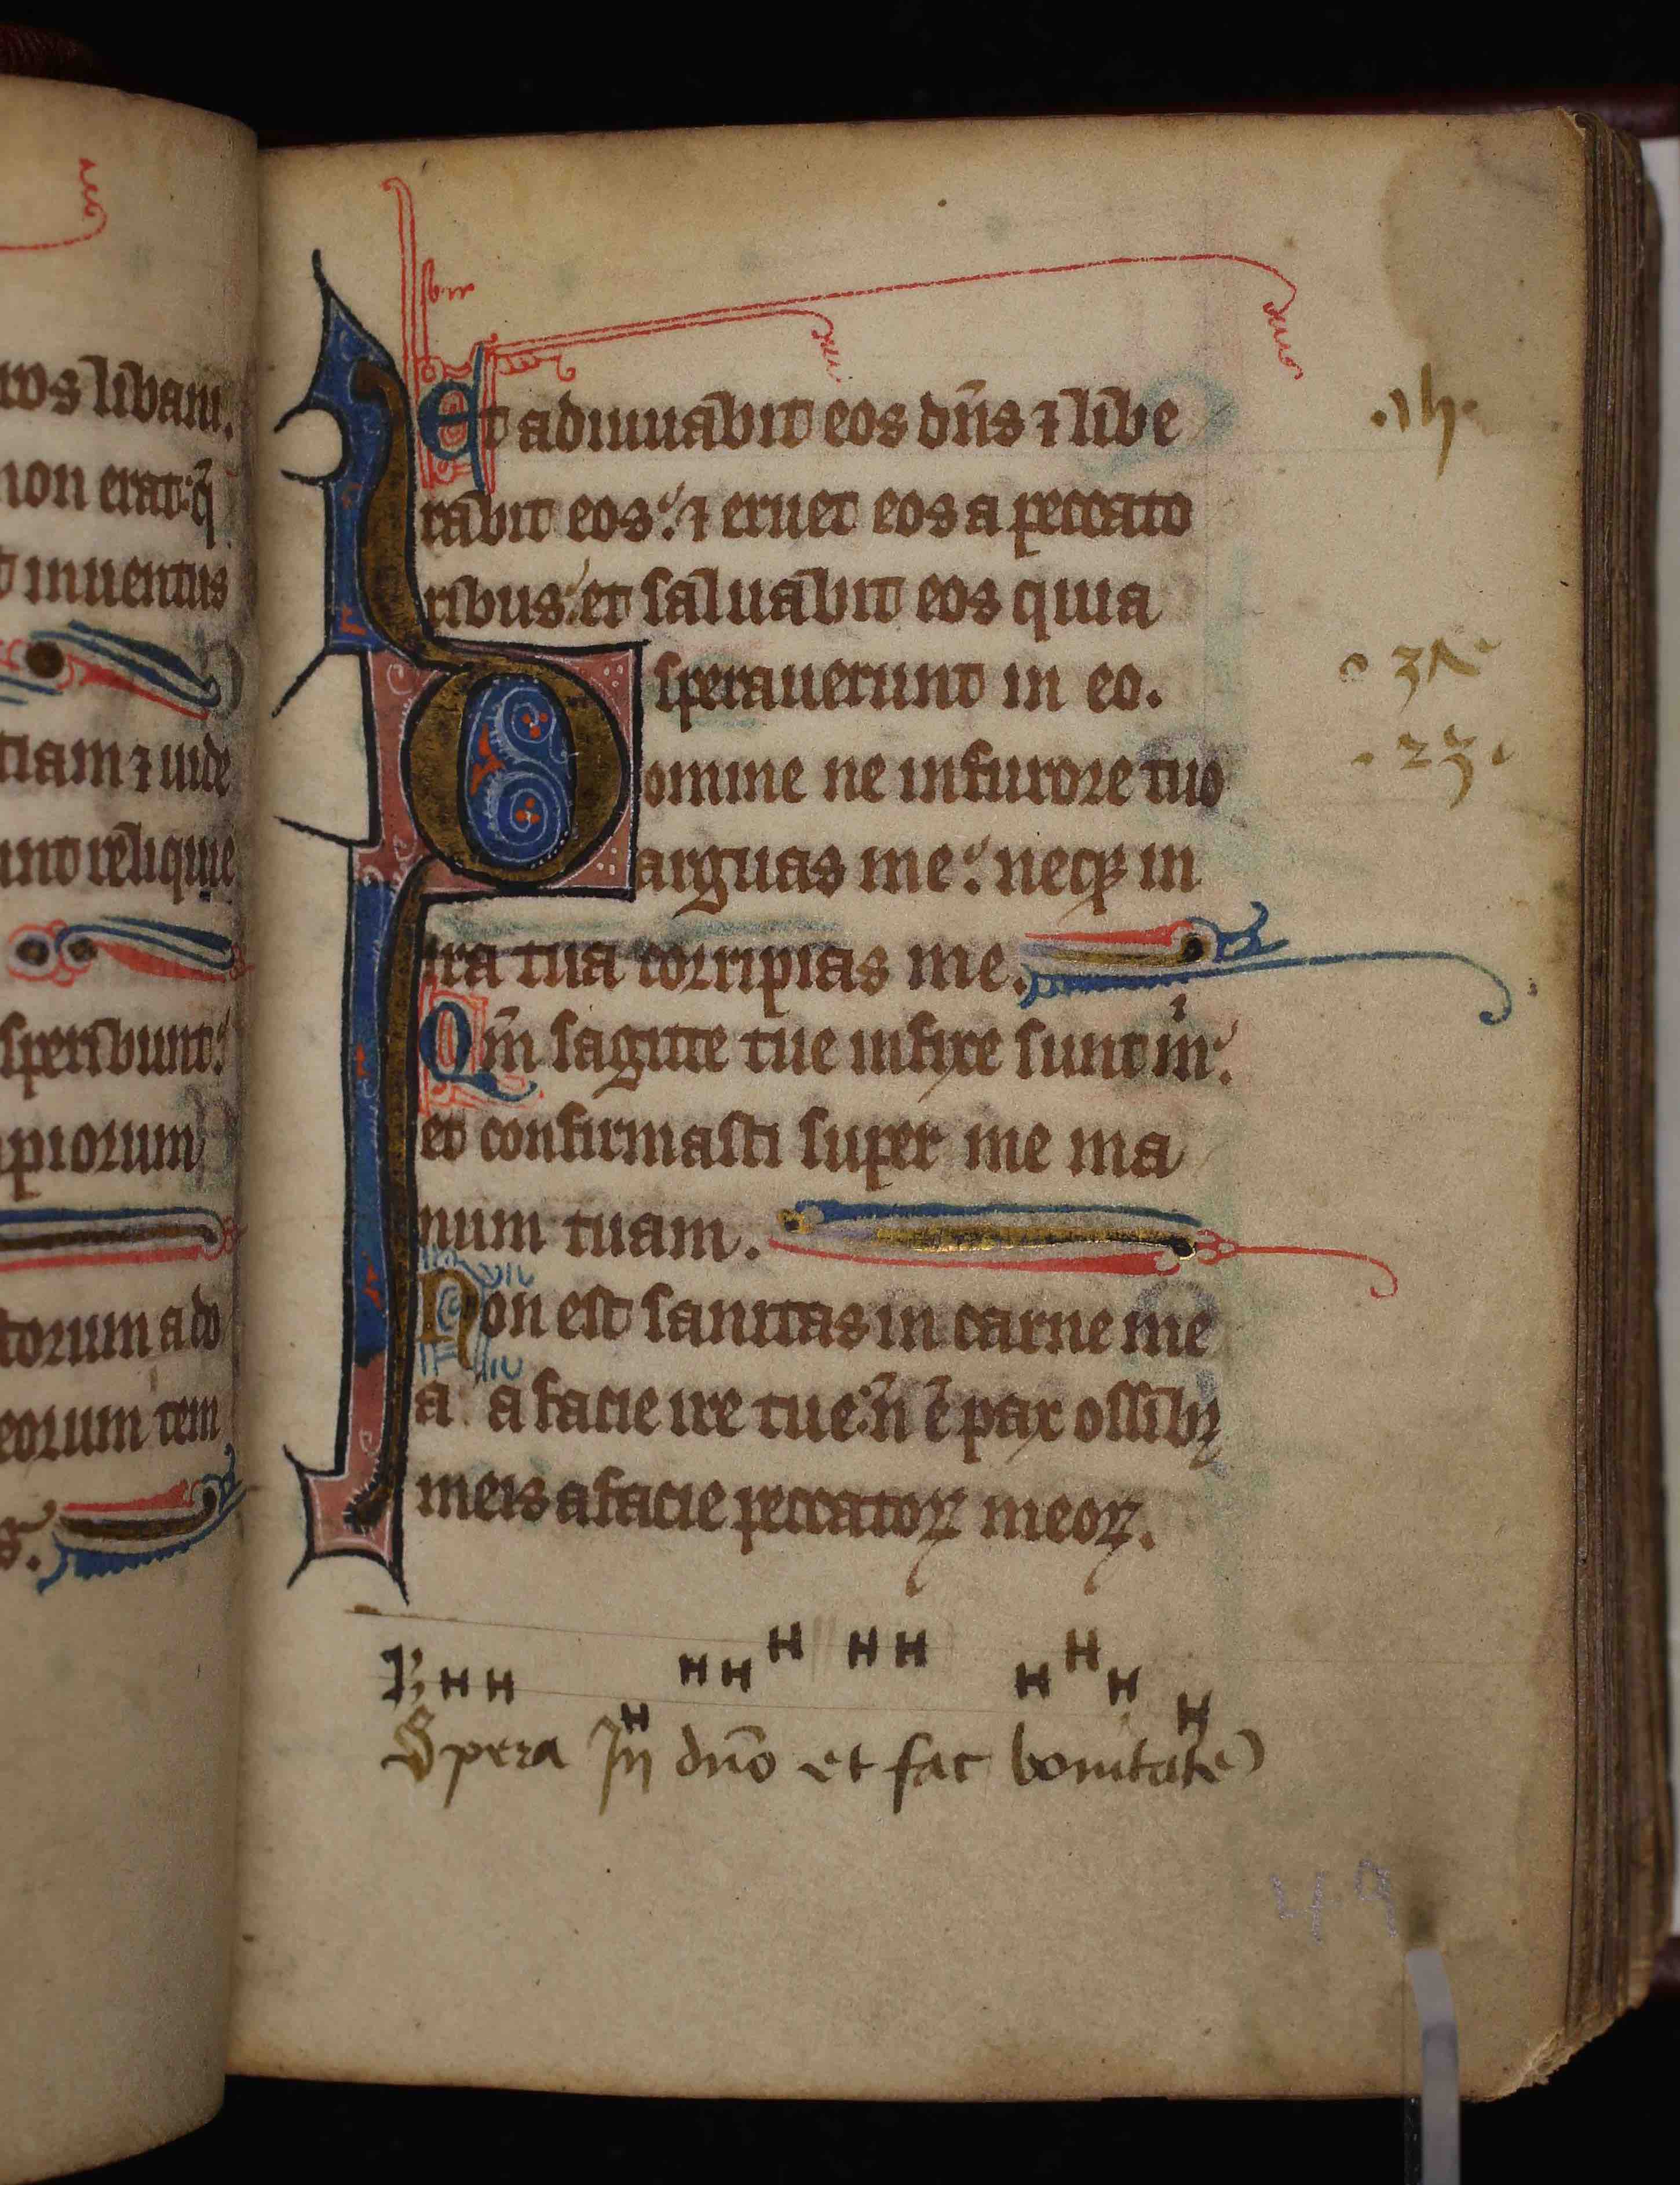 ros libani.
non erat: q̄
t inuentus
tiam ⁊ uide
unt reliquie
speribunt:
piorum
torum a do
eorum tem
s.
Et adiuuabit eos dn̄s ⁊ libe
rabit eos: ⁊ eruet eos a peccato
ribus: et saluabit eos quia
sperauerunt in eo.
Domine ne in furore tuo
arguas me: neqꝫ in
ira tua corripias me.
Qm̄ sagitte tue infixe sunt m̍:
et confirmasti super me ma
num tuam.
Non est sanitas in carne me
a a facie ire tue: n̄ ē pax ossibꝫ
meis a facie peccatoꝝ meoꝝ.
Spera In dn̄o et fac bonitatē
49